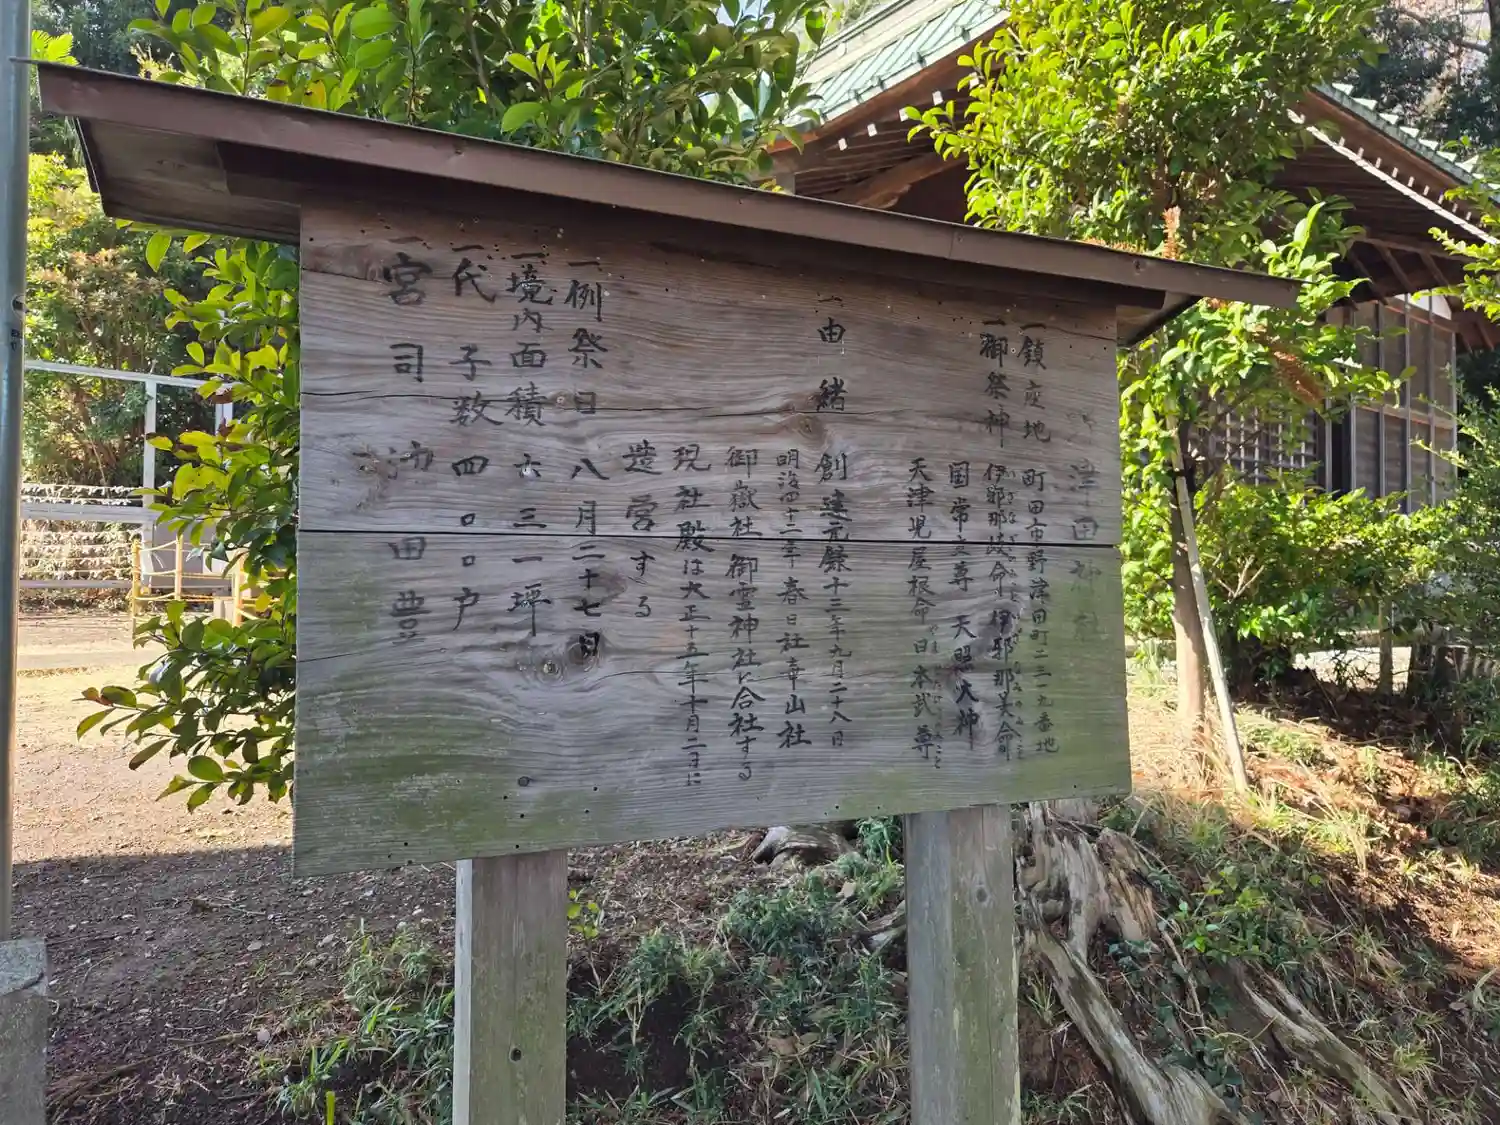 津田神社
一鎮座地 町田市野津田町二三一九番地
一御祭神 伊邪那岐命 伊邪那美命
国常立尊 天照大神
天津児屋根命 日本武尊
一由緒 創建元禄十三年九月二十八日
明治四十二年春日社
御嶽社御霊神社を合社する
現社殿は大正十五年十月二日に
造営する
一例祭日 八月二十七日
一境内面積 六三一坪
一氏子数 四〇〇戸
一宮司 池田豊